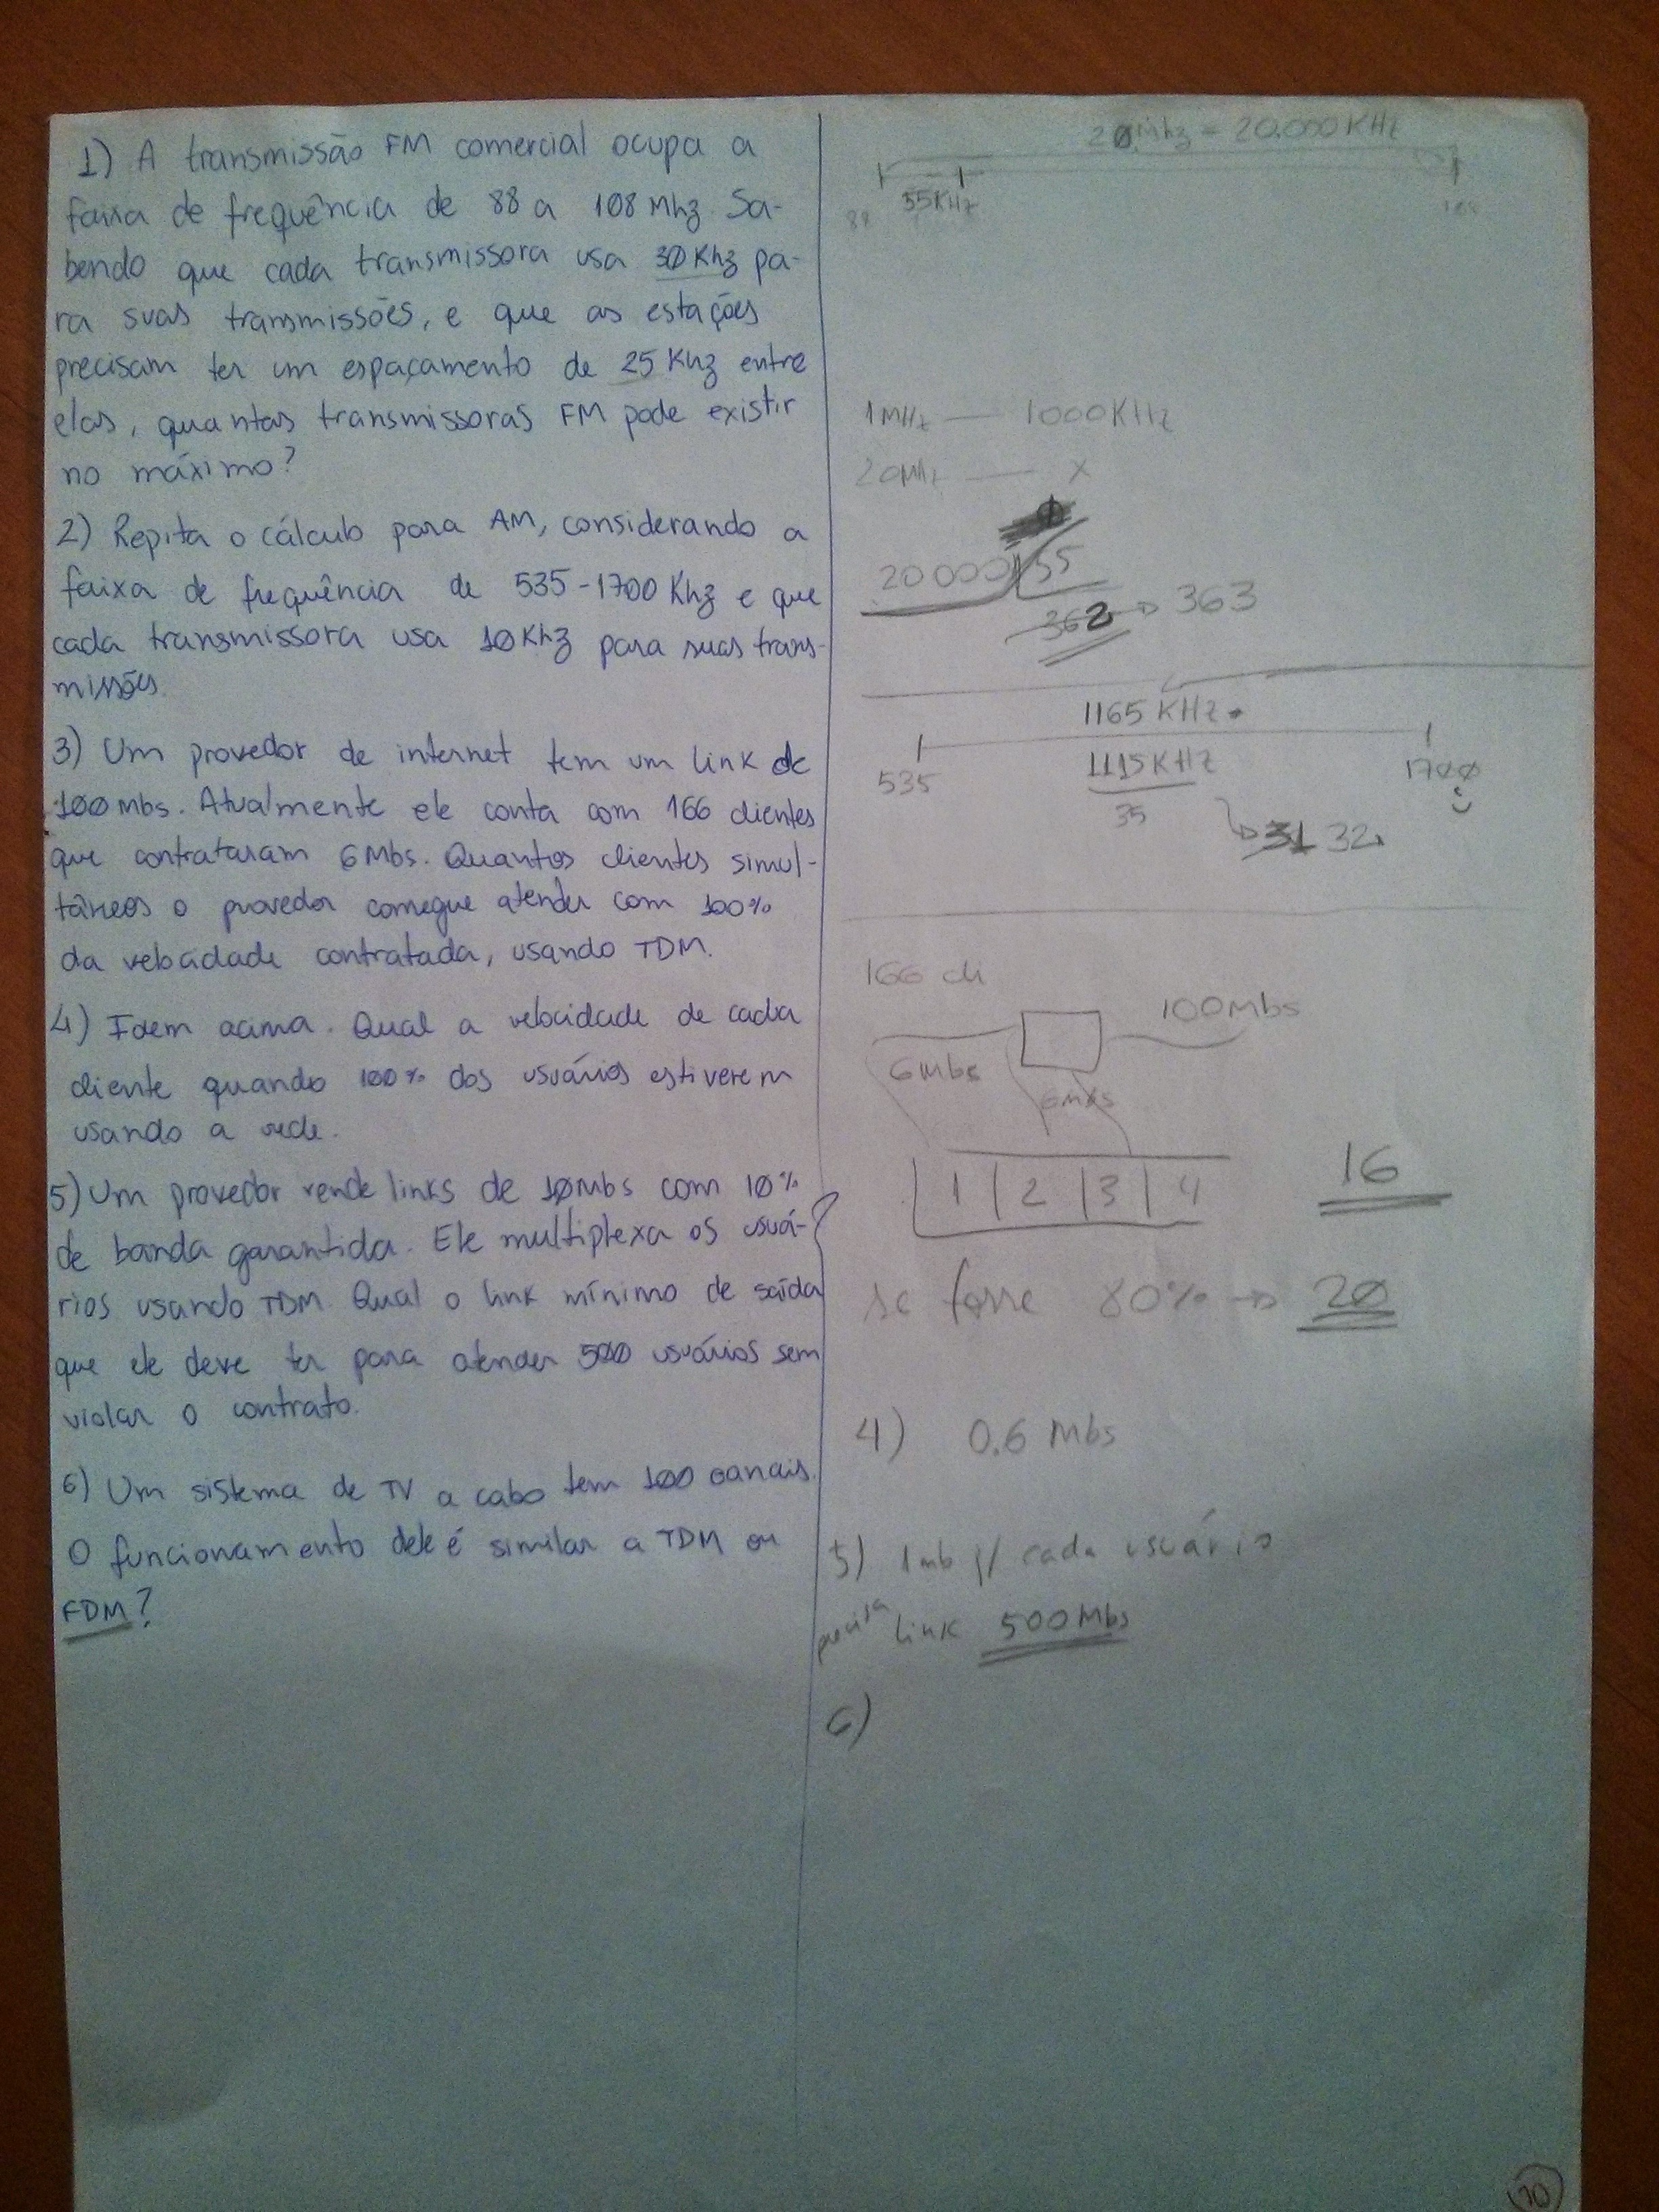 1) A transmissão FM comercial ocupa a
faixa de frequência de 88 a 108 Mhz. Sa-
bendo que cada transmissora usa 30Khz pa-
ra suas transmissões, e que as estações
precisam ter um espaçamento de 25 Khz entre
elas, quantas transmissoras FM pode existir
no máximo?
2) Repita o cálculo para AM, considerando a
faixa de frequência de 535-1700 Khz e que
cada transmissora usa 10Khz para suas trans-
missões.
3) Um provedor de internet tem um link de
100 Mbs. Atualmente ele conta com 166 clientes
que contrataram 6Mbs. Quantos clientes simul-
tâneos o provedor consegue atender com 100%
da velocidade contratada, usando TDM.
4) Idem acima. Qual a velocidade de cada
cliente quando 100% dos usuários estiverem
usando a rede.
5) Um provedor vende links de 10Mbs com 10%
de banda garantida. Ele multiplexa os usuá-
rios usando TDM. Qual o link mínimo de saída
que ele deve ter para atender 500 usuários sem
violar o contrato.
6) Um sistema de TV a cabo tem 100 canais.
O funcionamento dele é similar a TDM ou
FDM?
20Mhz = 20.000 KHz
55KHz
88 108
1MHz — 1000KHz
20Mhz — x
20000 55
362 → 363
1165 KHz
535 1115KHz 1700
35
31 32
166 cli
100Mbs
6Mbs
6Mbs
1 | 2 | 3 | 4
16
se fosse 80% → 20
4) 0.6 Mbs
5) 1mb p/ cada usuário
precisa link 500Mbs
6)